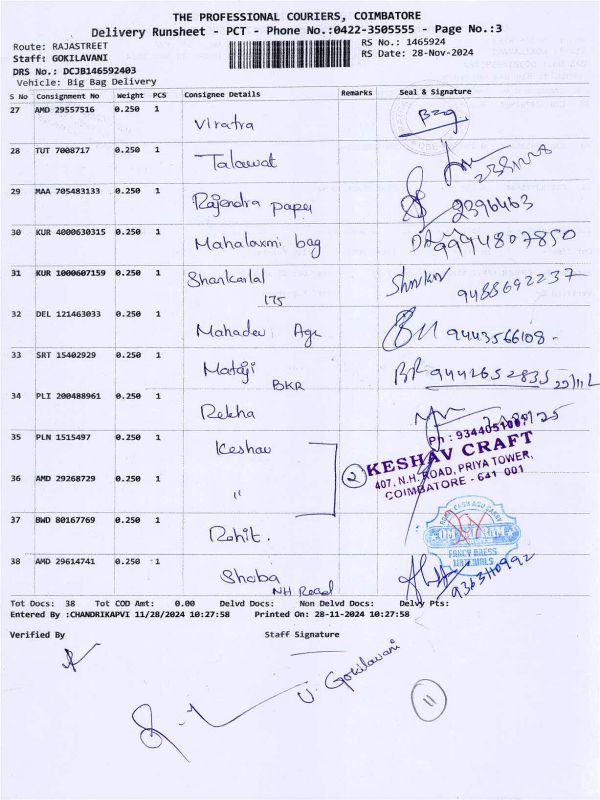 THE PROFESSIONAL COURIERS, COIMBATORE
Delivery Runsheet - PCT - Phone No.:0422-3505555 - Page No.:3
Route: RAJASTREET RS No.: 1465924
Staff: GOKILAVANI RS Date: 28-Nov-2024
DRS No.: DCJB146592403
Vehicle: Big Bag Delivery
S No Consignment No Weight PCS Consignee Details Remarks Seal & Signature
27 AMD 29557516 0.250 1 Viratra
28 TUT 7008717 0.250 1 Talawat
29 MAA 705483133 0.250 1 Rajendra paper 2396463
30 KUR 4000630315 0.250 1 Mahalaxmi bag 9994807850
31 KUR 1000607159 0.250 1 Shankarlal 175 9488692237
32 DEL 121463033 0.250 1 Mahadev Age 9443566108.
33 SRT 15402929 0.250 1 Mataji BKR BR 9442652835
34 PLI 200488961 0.250 1 Rekha
35 PLN 1515497 0.250 1 Keshav
36 AMD 29268729 0.250 1 "
2
KESHAV CRAFT
407, N.H. ROAD, PRIYA TOWER,
COIMBATORE - 641 001
37 BWD 80167769 0.250 1 Rohit.
FANCY DRESS
MATERIALS
38 AMD 29614741 0.250 1 Shoba NH Road 9363110992
Tot Docs: 38 Tot COD Amt: 0.00 Delvd Docs: Non Delvd Docs: Delvy Pts:
Entered By :CHANDRIKAPVI 11/28/2024 10:27:58 Printed On: 28-11-2024 10:27:58
Verified By Staff Signature
V. Gokilavani
11